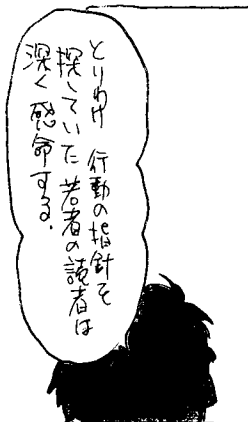 とりわけ 行動の指針を
探していた若者の読者は
深く感命する.